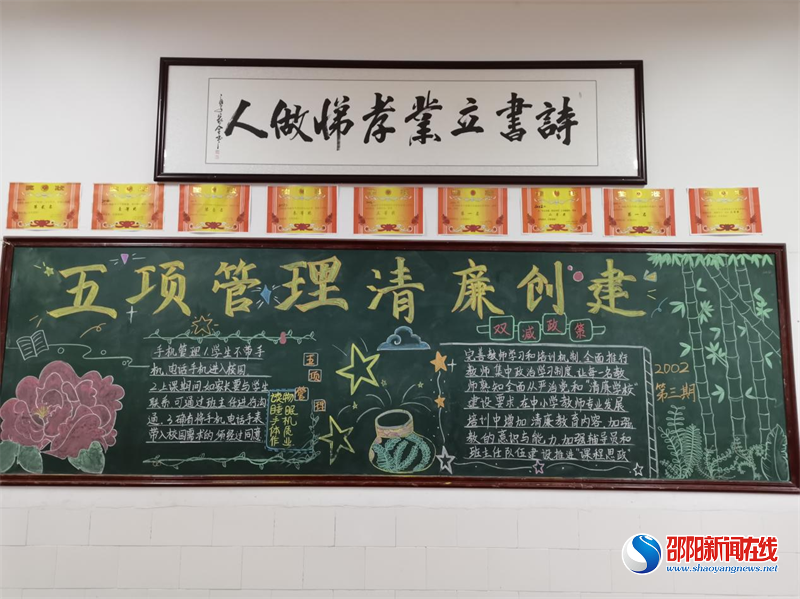 詩書立業孝悌做人
五项管理清廉创建
手机管理1学生不带手
机,电话手机进入校园
2上课期间如家长要与学生
联系可通过班主任进行沟
通.3.确有将手机,电话手表
带入校园需求的须经过同意
五项
管理
双减政策
完善教师学习和培训机制,全面推行
教师集中政治学习制度,让每一名教
师熟知全面从严治党和"清廉学校"
建设要求.在中小学教师专业发展
培训中增加清廉教育内容,加强
教的意识与能力.加强辅导员和
班主任队伍建设推进"课程思政"
2002
第三期
邵阳新闻在线
www.shaoyangnews.net